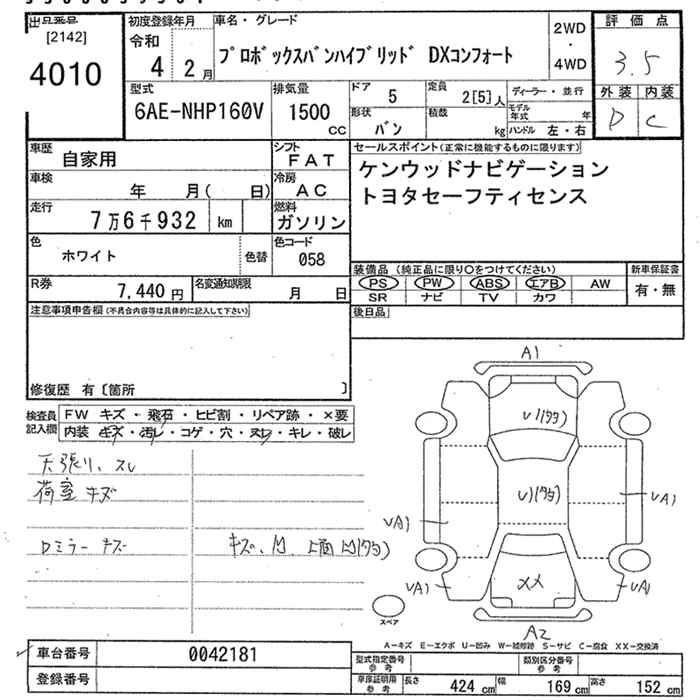 出品番号
[2142]
4010
初度登録年月
令和
4 2 月
車名・グレード
プロボックスバンハイブリッド DXコンフォート
2WD
・
4WD
評価点
3.5
外装 内装
D C
型式
6AE-NHP160V
排気量
1500
cc
ドア 5
形状 バン
定員 2[5] 人
積載 kg
ディーラー・並行
モデル年式 年
ハンドル 左・右
車歴 自家用
シフト FAT
車検 年 月( 日)
冷房 AC
走行 7万6千932 km
燃料 ガソリン
色 ホワイト 色替
色コード 058
R券 7,440 円
名変通知期限 月 日
セールスポイント(正常に機能するものに限ります)
ケンウッドナビゲーション
トヨタセーフティセンス
装備品 (純正品に限り○をつけてください)
PS PW ABS エアB AW
SR ナビ TV カワ
新車保証書
有・無
後日品
注意事項申告欄(不具合内容等は具体的に記入して下さい)
修復歴 有〔箇所 〕
検査員記入欄
FW キズ・飛石・ヒビ割・リペア跡・×要
内装 キズ・汚レ・コゲ・穴・ヌレ・キレ・破レ
天張り、スレ
荷室 キズ
Dミラー キズ
A1
VA1
VA1
VA1
VA1
XX
A2
スペア
A―キズ E―エクボ U―凹み W―補修跡 S―サビ C―腐食 XX―交換済
車台番号 0042181
登録番号
型式指定番号 参考
類別区分番号 参考
車庫証明用 参考
長さ 424 cm 幅 169 cm 高さ 152 cm